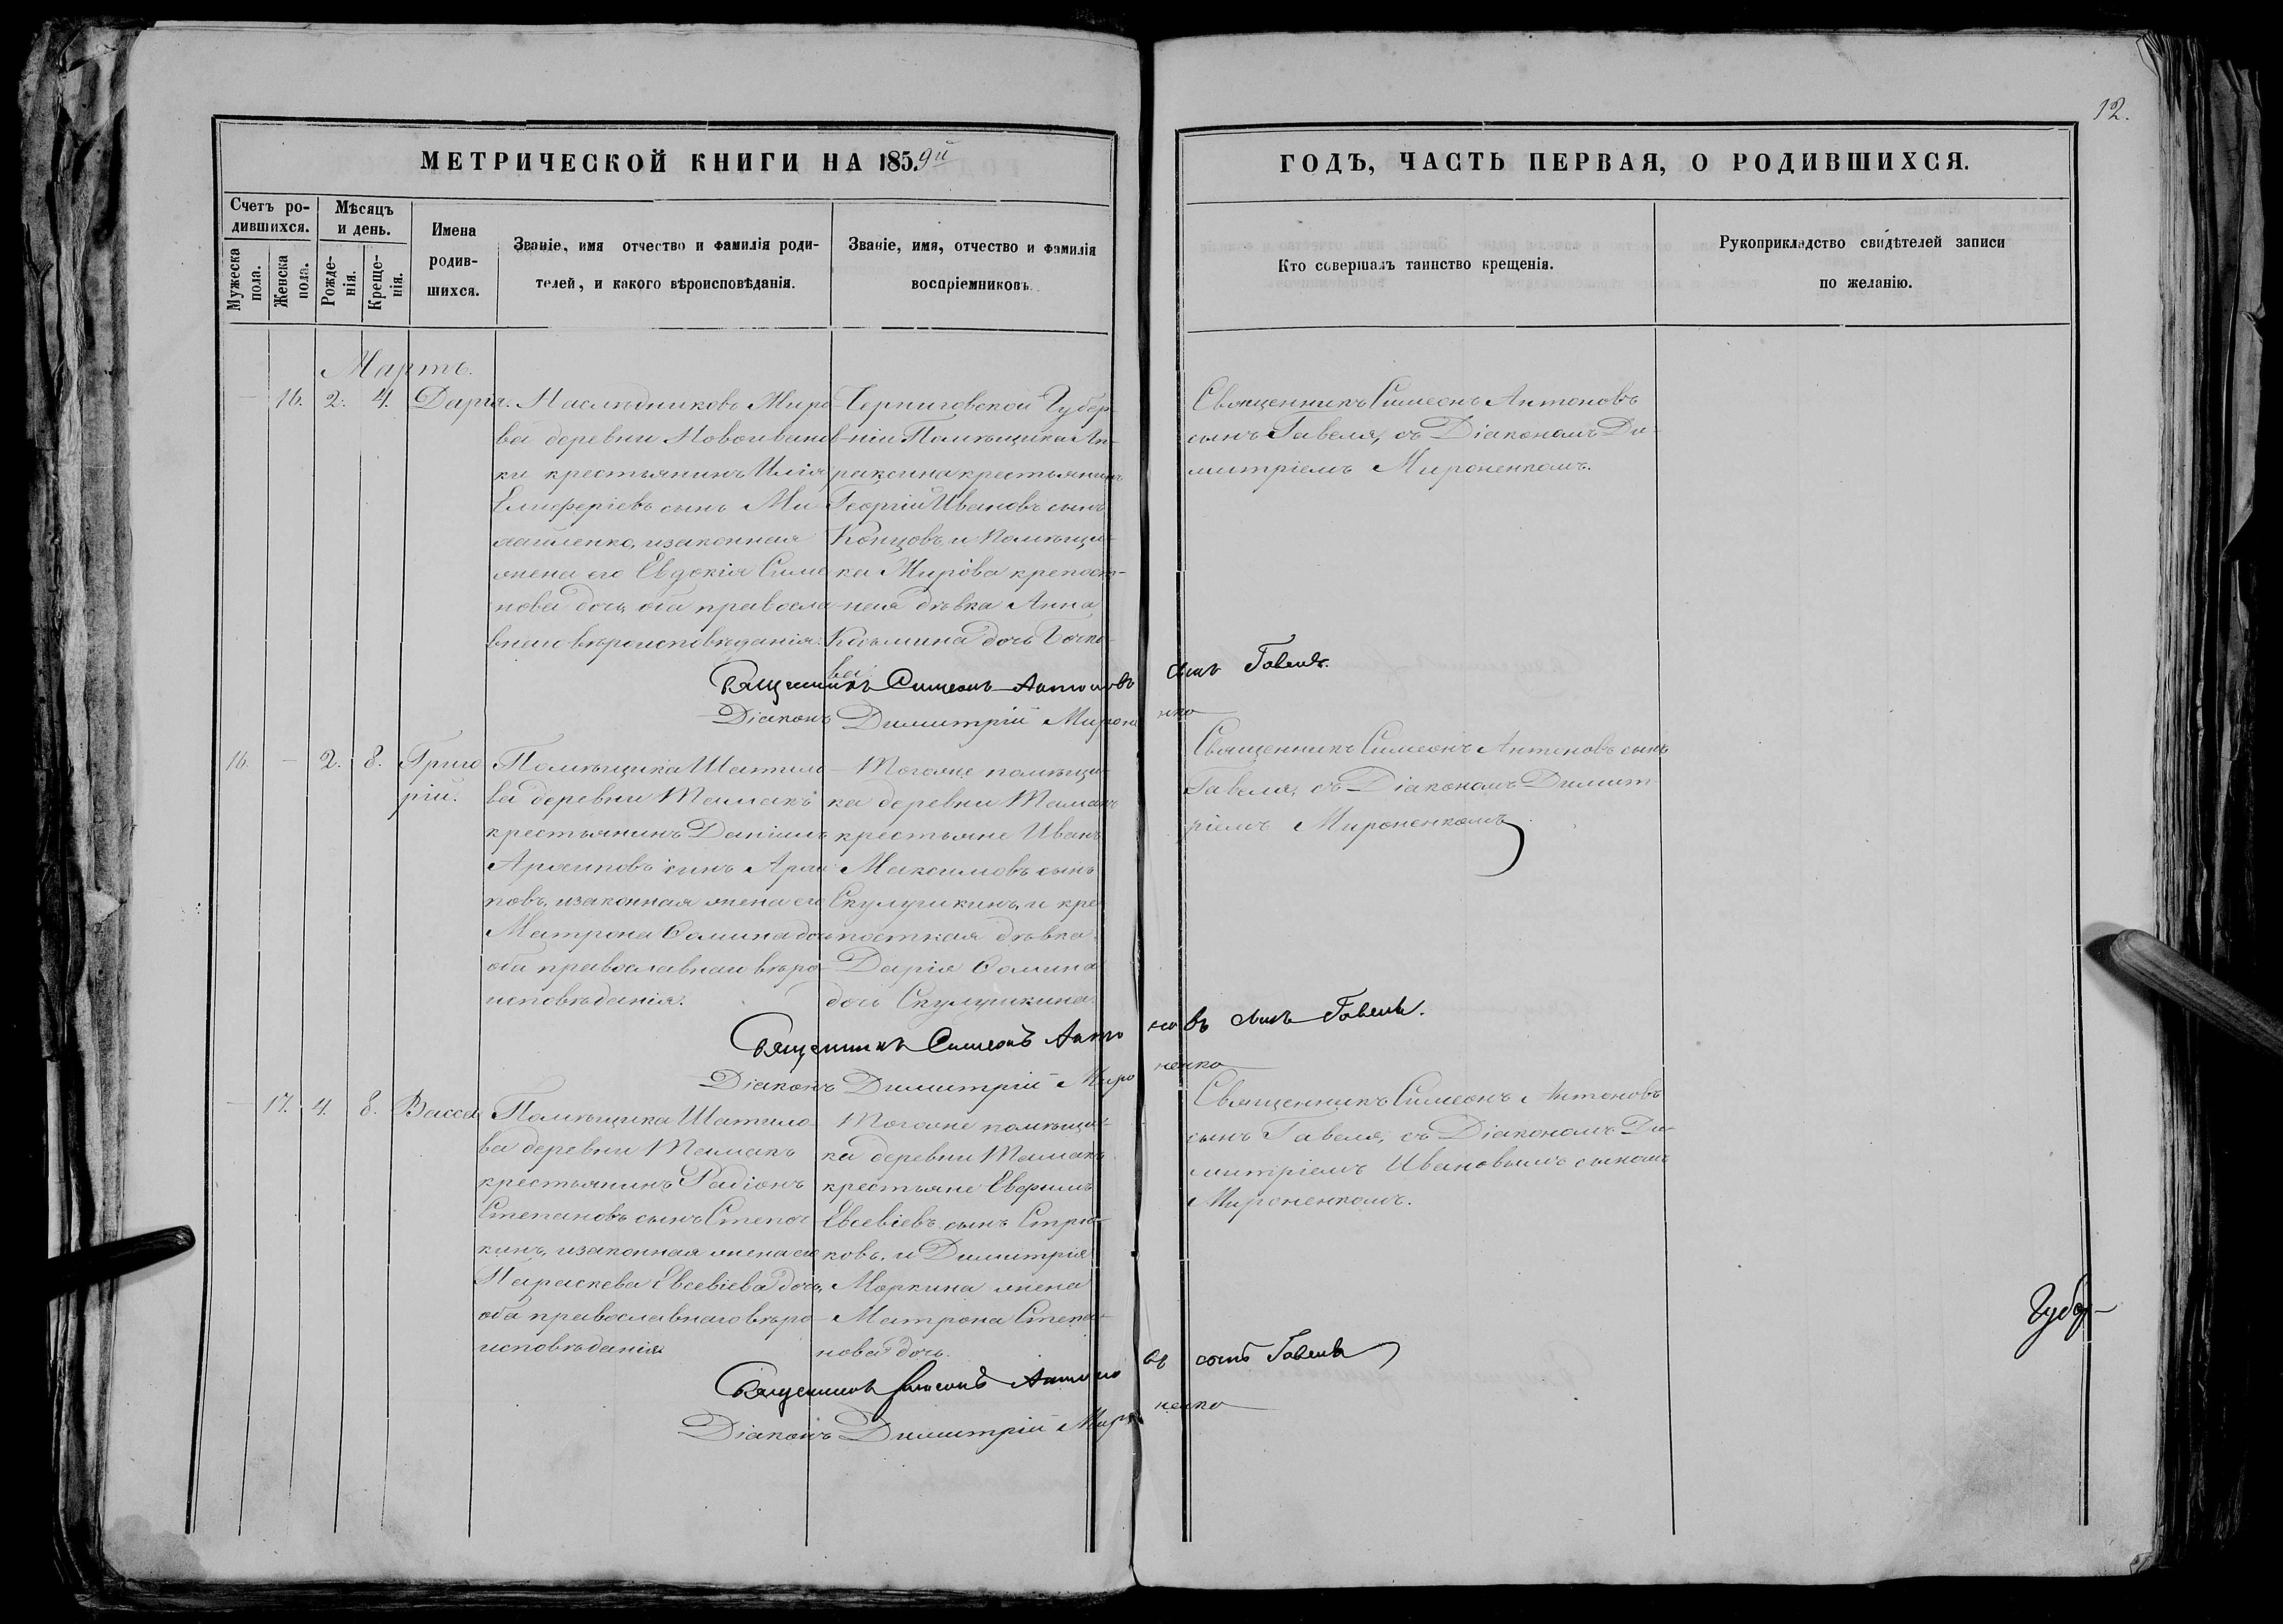 12.
МЕТРИЧЕСКОЙ КНИГИ НА 1859й
ГОДЪ, ЧАСТЬ ПЕРВАЯ, О РОДИВШИХСЯ.
Счетъ ро-
дившихся.
Мужеска
пола.
Женска
пола.
Мѣсяцъ
и день.
Рожде-
нія.
Креще-
нія.
Имена
родив-
шихся.
Званіе, имя отчество и фамилія роди-
телей, и какого вѣроисповѣданія.
Званіе, имя, отчество и фамилія
воспріемниковъ.
Кто совершалъ таинство крещенія.
Рукоприкладство свидѣтелей записи
по желанію.
Мартъ.
— 16. 2. 4. Дарія.
Наслѣдниковъ Миро
ва деревни Новоиванов
ки крестьянинъ Илія
Елиферіевъ сынъ Ми
хайленко, изаконная
жена его Евдокія Симо
нова дочь оба правосла
внаго вѣроисповѣданія.
Черниговской Губер
ніи Помѣщика Ап-
раксина крестьянинъ
Георгій Ивановъ сынъ
Концовъ, и Помѣщи-
ка Мирова крепост-
ная дѣвка Анна
Козьмина дочь Бочко
ва
Священникъ Симеонъ Антоновъ
сынъ Гавеля, съ Діакономъ Ди-
митріемъ Мироненкомъ.
Священникъ Симеонъ Антоновъ сынъ Гавеля.
Діаконъ Димитрій Мироненко
16. — 2. 8. Григо
рій.
Помѣщика Шатило
ва деревни Тамакъ
крестьянинъ Даніилъ
Архиповъ сынъ Архи
повъ, изаконная жена его
Матрона Фомина дочь
оба православнаго вѣро-
исповѣданія.
Тогоже помѣщи-
ка деревни Тамакъ
крестьяне Иванъ
Максимовъ сынъ
Скулушкинъ, и кре
посткая дѣвка
Дарія Фомина
дочь Скулушкина.
Священникъ Симеонъ Антоновъ сынъ
Гавеля, съ Діакономъ Димит-
ріемъ Мироненкомъ
Священникъ Симеонъ Антоновъ сынъ Гавеля.
Діаконъ Димитрій Мироненко
— 17. 4. 8. Васса
Помѣщика Шатило
ва деревни Тамакъ
крестьянинъ Радіонъ
Степановъ сынъ Степоч
кинъ, изаконная жена его
Параскева Евсевіева дочь,
оба православнаго вѣро-
исповѣданія.
Тогоже помѣщи-
ка деревни Тамакъ
крестьяне Евфимъ
Евсевіевъ сынъ Стрю-
ковъ, и Димитрія
Моркина жена
Матрона Степа-
нова дочь.
Священникъ Симеонъ Антоновъ
сынъ Гавеля, съ Діакономъ Ди-
митріемъ Ивановымъ сыномъ
Мироненкомъ.
Губер-
Священникъ Симеонъ Антоновъ сынъ Гавеля
Діаконъ Димитрій Мироненко